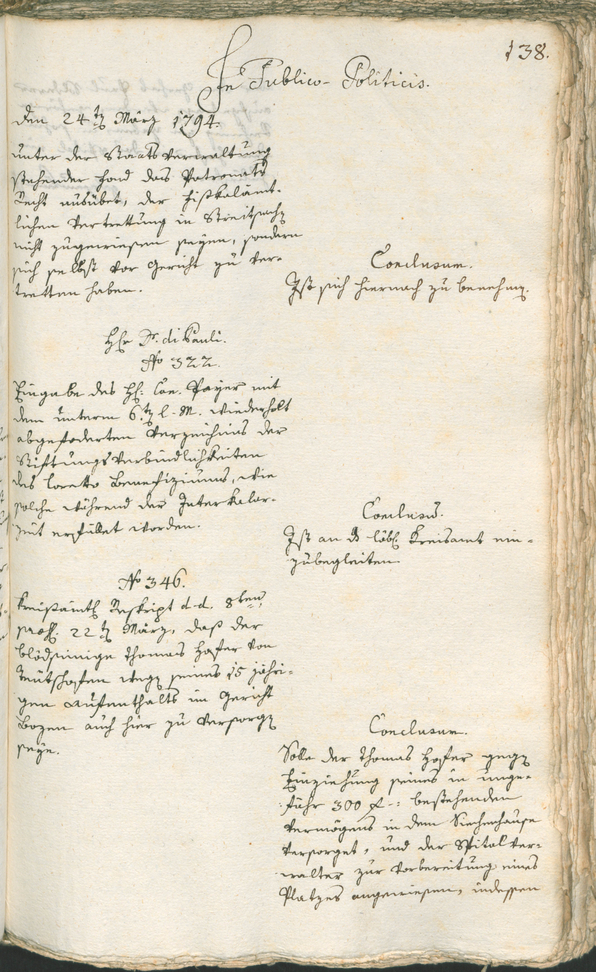 138.
In Publico-Politicis.
den 24ten März 1794.
unter der Staatsverwaltung
stehender Fond das Patronats
Recht ausübet, der fiskalämt-
lichen Vertrettung in Streitsachen
nicht zugewiesen seyen, sondern
sich selbst vor Gericht zu ver-
tretten haben.
Conclusum.
Ist sich hiernach zu benehmen.
Hr. Dr. di Pauli.
No 322.
Eingabe des Hr. Con. Payer mit
dem unterm 6ten l. M. wiederholt
abgeforderten Verzeichnis der
Stiftungsverbindlichkeiten
des Loreto Benefiziums, wie
solche während der Interkalar-
zeit erfüllet worden.
Conclusum.
Ist an das löbl. Kreisamt ein-
zubegleiten.
No 346.
Kreisämtl. Reskript d. d. 8ten,
praes. 22ten März, daß der
blödsinnige Thomas Hofer von
Teutschofen wegen seines 15 jähri-
gen Aufenthalts im Gericht
Bozen auch hier zu versorgen
seye.
Conclusum.
Solle der Thomas Hofer gegen
Einziehung seines in unge-
fähr 300 f: bestehenden
Vermögens in dem Siechenhause
versorget, und der Spitalver-
walter zur Vorbereitung eines
Platzes angewiesen, indessen